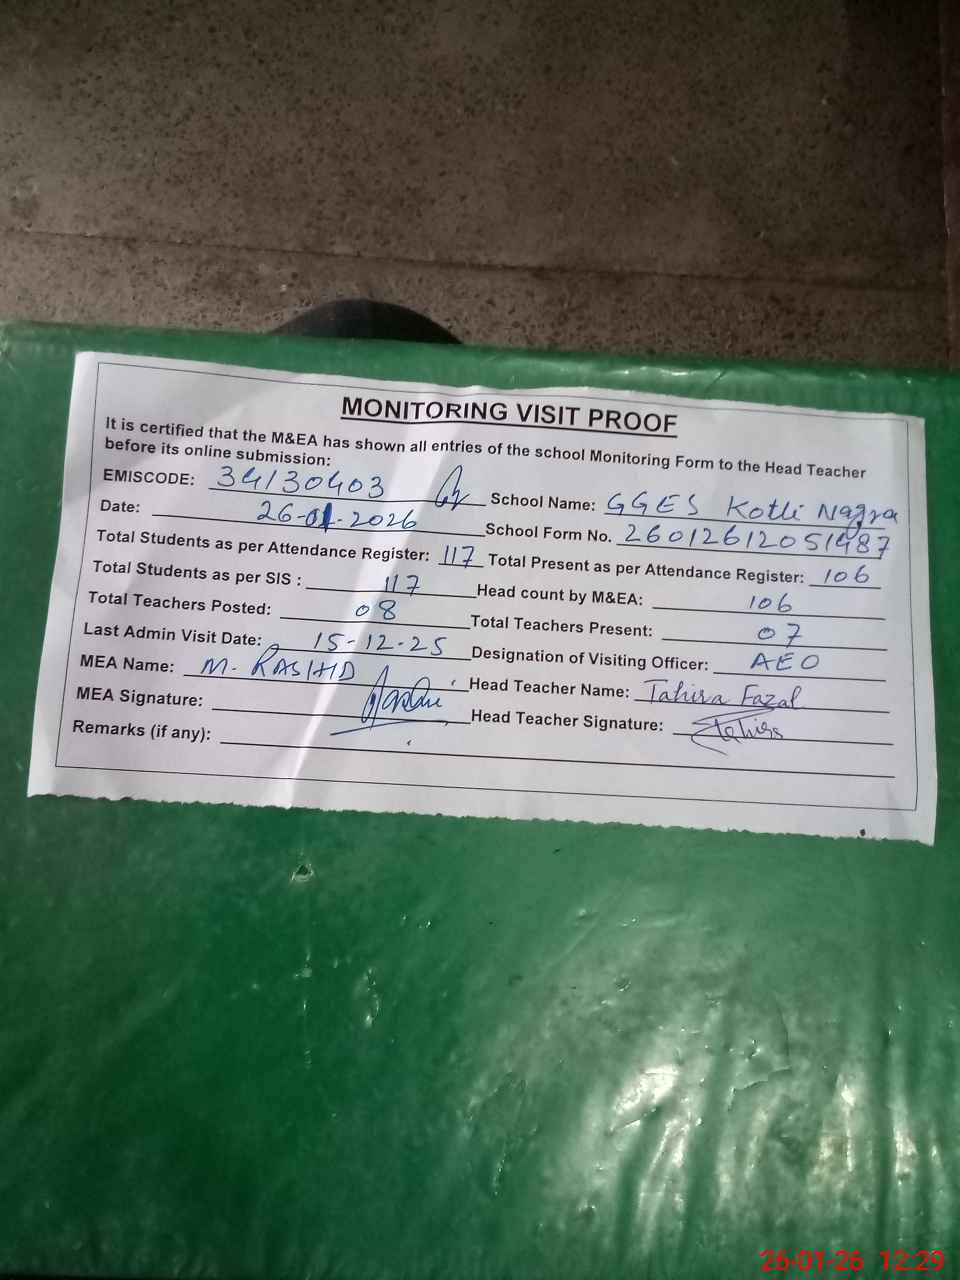 MONITORING VISIT PROOF
It is certified that the M&EA has shown all entries of the school Monitoring Form to the Head Teacher
before its online submission:
EMISCODE: 34130403 School Name: GGES Kotli Nagra
Date: 26-01-2026 School Form No. 26012612051487
Total Students as per Attendance Register: 117 Total Present as per Attendance Register: 106
Total Students as per SIS : 117 Head count by M&EA: 106
Total Teachers Posted: 08 Total Teachers Present: 07
Last Admin Visit Date: 15-12-25 Designation of Visiting Officer: AEO
MEA Name: M. RASHID Head Teacher Name: Tahira Fazal
MEA Signature: Head Teacher Signature:
Remarks (if any):
26-01-26 12:29